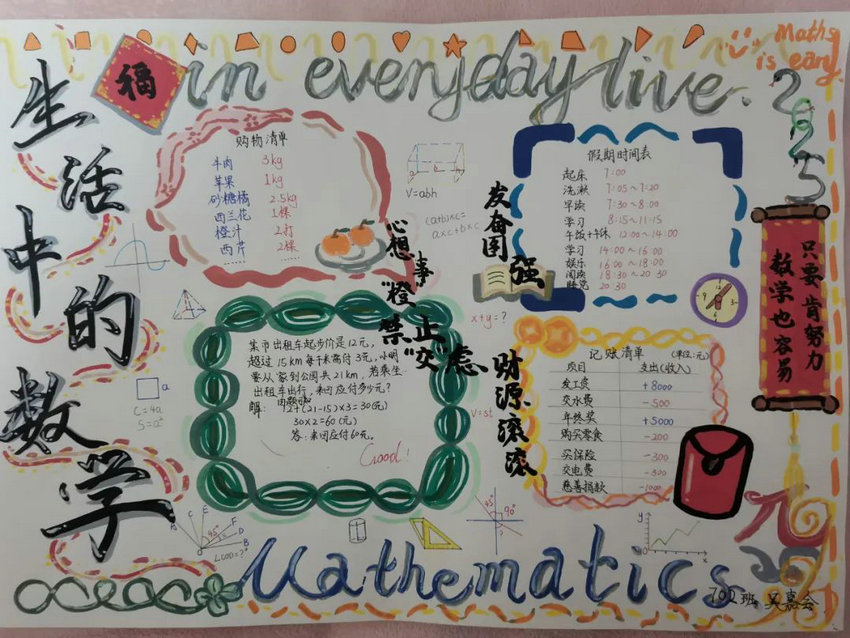 Maths
is easy.
福 in everyday live.
2025
生活中的数学
购物清单
牛肉 3kg
苹果 1kg
砂糖橘 2.5kg
西兰花 1棵
橙汁 2打
西芹 2棵
……
V=abh
(a+b)×c=
a×c+b×c
心想事
“橙”
发奋图
强
假期时间表
起床 7:00
洗漱 7:05~7:20
早读 7:30~8:00
学习 8:15~11:15
午饭+午休 12:00~14:00
学习 14:00~16:00
娱乐 16:00~18:00
阅读 18:30~20:30
睡觉 20:30
只要肯努力
数学也容易
x+y=?
禁止
“交”虑
某市出租车起步价是12元,
超过15km每千米需付3元,小明
要从家到公园共21km,若乘坐
出租车出行,来回应付多少元?
解: 由题可知
12+(21-15)×3=30(元)
30×2=60(元)
答:来回应付60元。
Good!
a
C=4a
S=a²
V=st
财源滚滚
记账清单 (单位:元)
项目 支出(收入)
发工资 +8000
交水费 -500
年终奖 +5000
购买零食 -200
买保险 -300
交电费 -300
慈善捐款 -1000
45°
90°
C E
F
D
B
45°
y
x
Mathematics
702班 吴嘉会